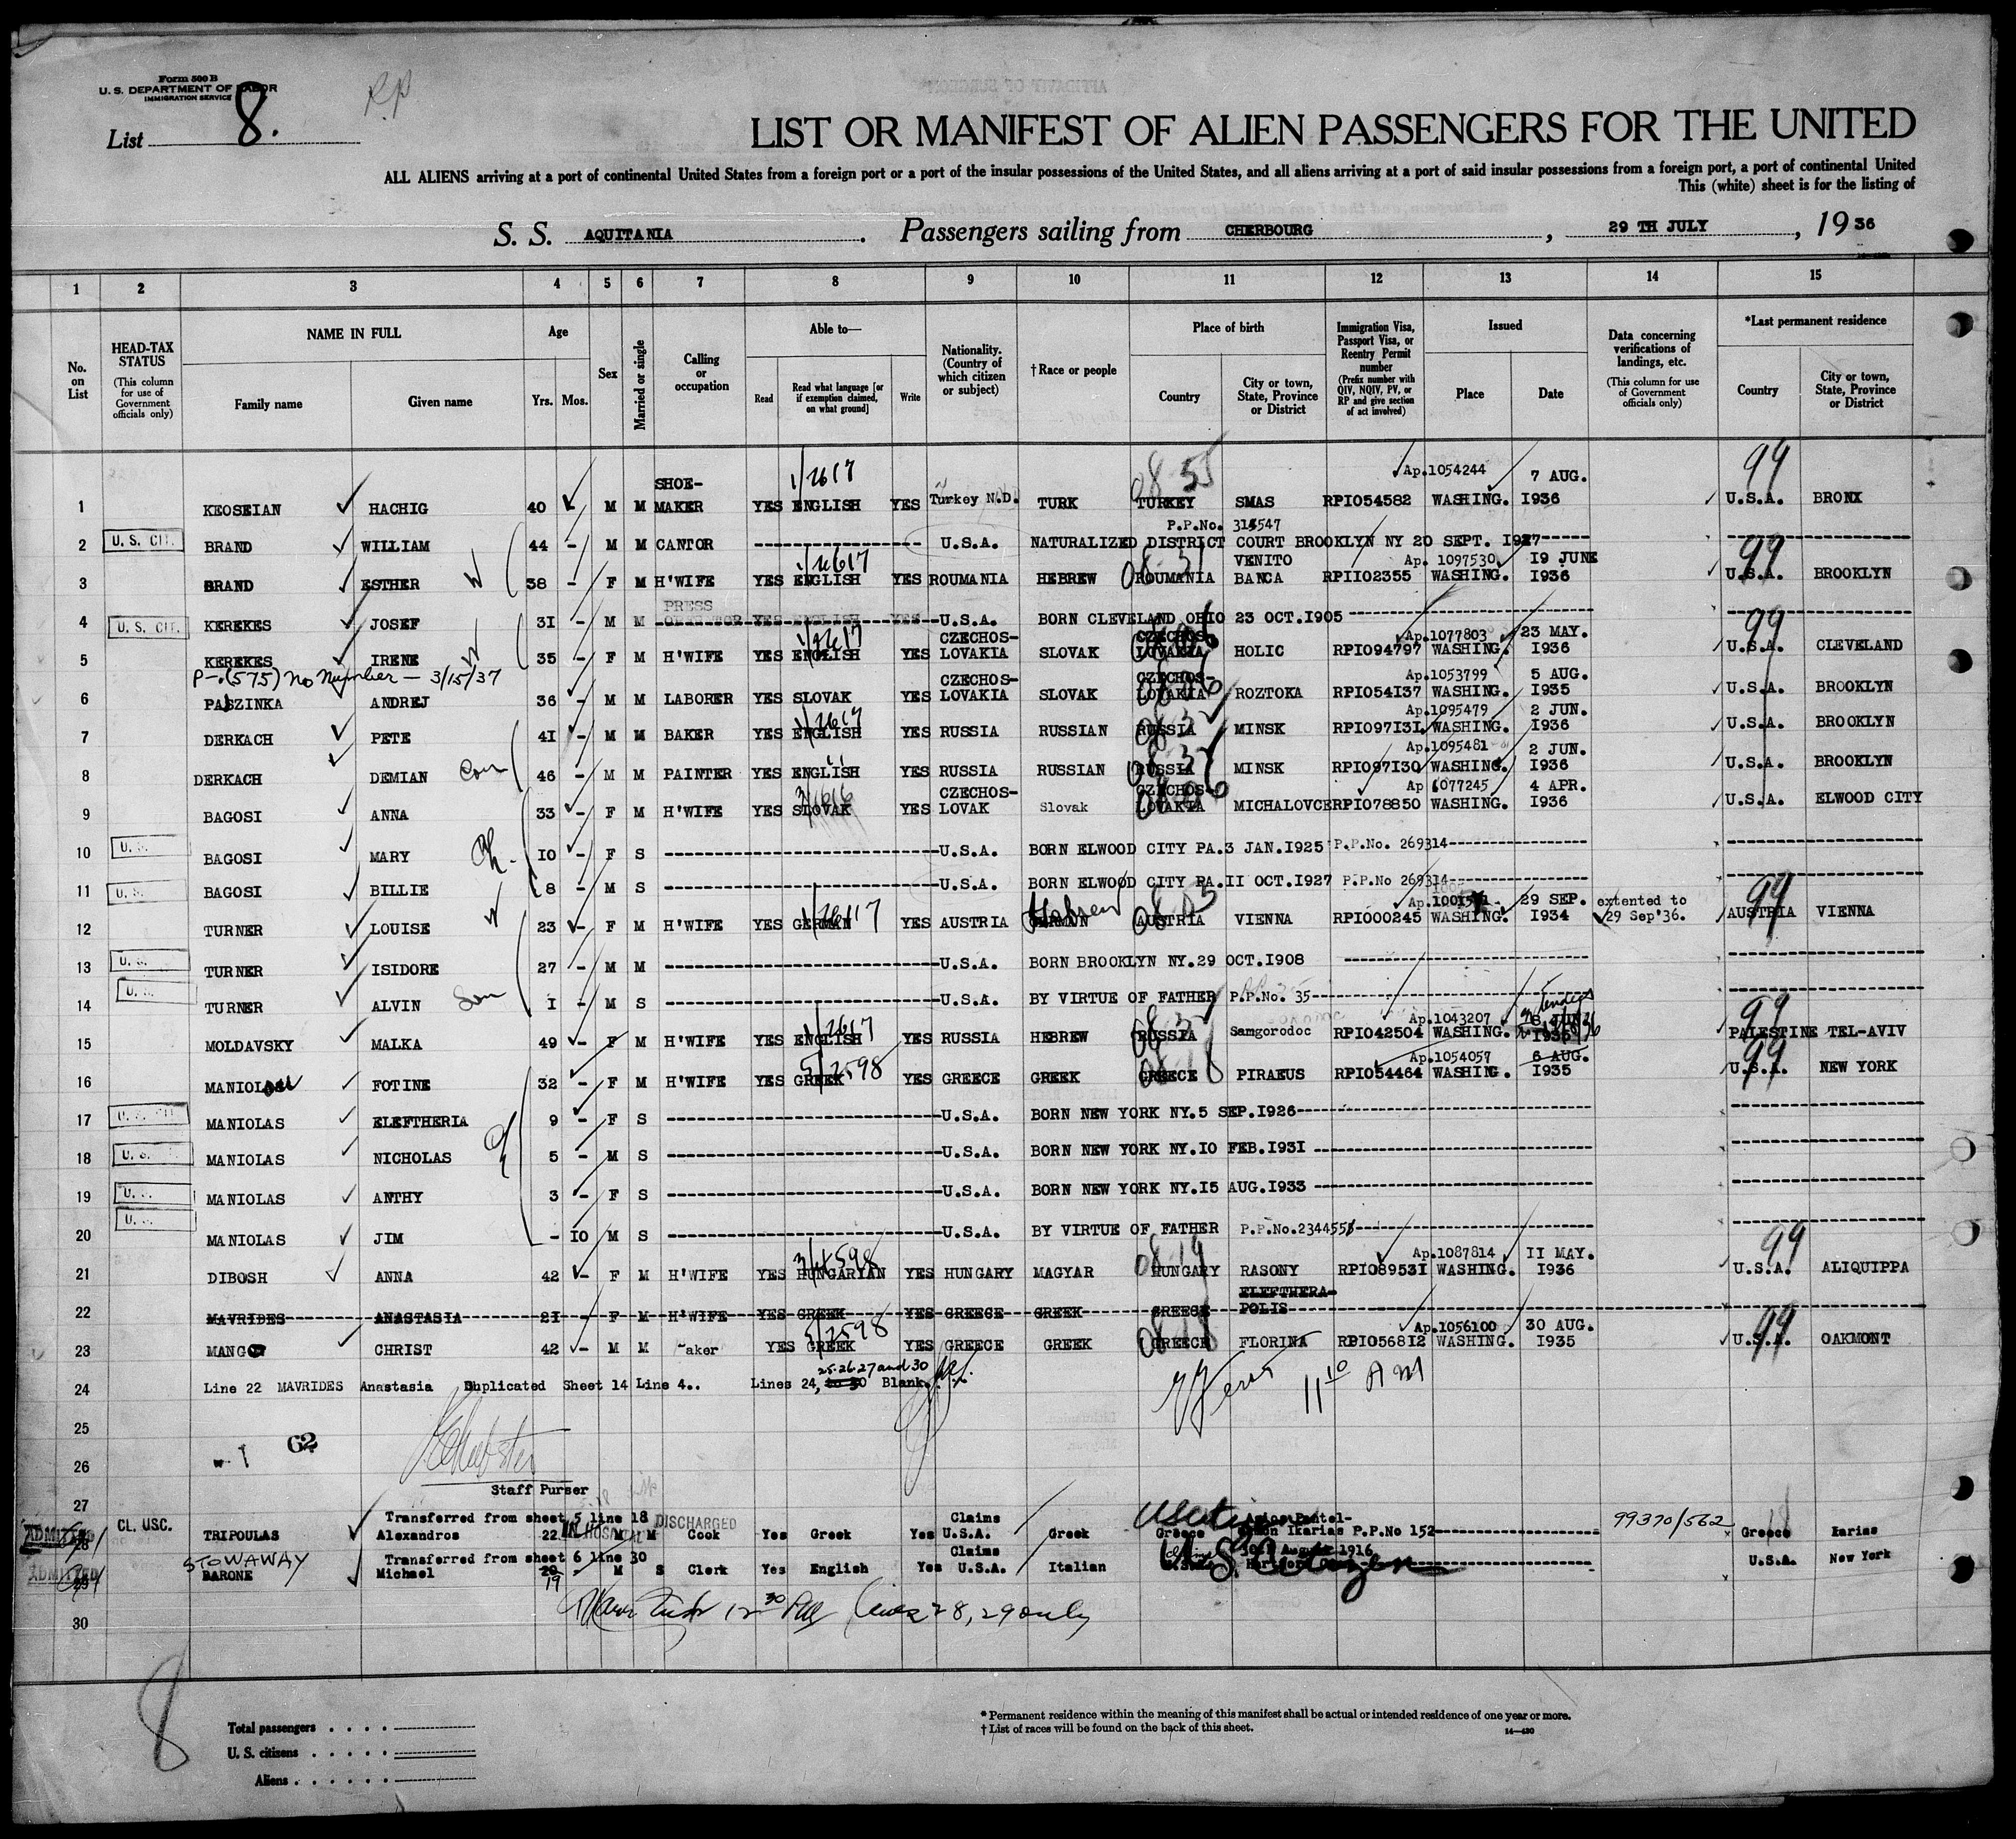 Form 500 B
U. S. DEPARTMENT OF LABOR
IMMIGRATION SERVICE
R.P
List 8.
LIST OR MANIFEST OF ALIEN PASSENGERS FOR THE UNITED
ALL ALIENS arriving at a port of continental United States from a foreign port or a port of the insular possessions of the United States, and all aliens arriving at a port of said insular possessions from a foreign port, a port of continental United
This (white) sheet is for the listing of
S. S. AQUITANIA. Passengers sailing from CHERBOURG, 29 TH JULY, 1936
1 2 3 4 5 6 7 8 9 10 11 12 13 14 15
No. on List
HEAD-TAX STATUS (This column for use of Government officials only)
NAME IN FULL
Family name
Given name
Age
Yrs. Mos.
Sex
Married or single
Calling or occupation
Able to—
Read
Read what language [or if exemption claimed, on what ground]
Write
Nationality. (Country of which citizen or subject)
†Race or people
Place of birth
Country
City or town, State, Province or District
Immigration Visa, Passport Visa, or Reentry Permit number (Prefix number with QIV, NQIV, PV, or RP and give section of act involved)
Issued
Place
Date
Data concerning verifications of landings, etc. (This column for use of Government officials only)
*Last permanent residence
Country
City or town, State, Province or District
1 KEOSEIAN HACHIG 40 M M SHOE-MAKER YES ENGLISH YES Turkey N.D. TURK TURKEY SMAS RPI054582 Ap.1054244 WASHING. 7 AUG. I936 99 U.S.A. BRONX
2 U. S. CIT. BRAND WILLIAM 44 - M M CANTOR U.S.A. NATURALIZED DISTRICT COURT BROOKLYN NY 20 SEPT. I927 P.P.No. 315547
3 BRAND ESTHER W 38 - F M H'WIFE YES ENGLISH YES ROUMANIA HEBREW ROUMANIA VENITO BANCA RPII02355 Ap. 1097530 WASHING. I9 JUNE I936 99 U.S.A. BROOKLYN
4 U. S. CIT. KEREKES JOSEF 3I - M M PRESS OPERATOR YES ENGLISH YES U.S.A. BORN CLEVELAND OHIO 23 OCT.I905
5 KEREKES IRENE W 35 - F M H'WIFE YES ENGLISH YES CZECHOS-LOVAKIA SLOVAK CZECHOS-LOVAKIA HOLIC RPI094797 Ap.1077803 WASHING. 23 MAY. I936 99 U.S.A. CLEVELAND
P-(575) No Number - 3/15/37
6 PASZINKA ANDREJ 36 - M M LABORER YES SLOVAK YES CZECHOS-LOVAKIA SLOVAK CZECHOS-LOVAKIA ROZTOKA RPI054I37 Ap.1053799 WASHING. 5 AUG. I935 U.S.A. BROOKLYN
7 DERKACH PETE 4I - M M BAKER YES ENGLISH YES RUSSIA RUSSIAN RUSSIA MINSK RPI097I3I Ap.1095479 WASHING. 2 JUN. I936 U.S.A. BROOKLYN
8 DERKACH DEMIAN 46 - M M PAINTER YES ENGLISH YES RUSSIA RUSSIAN RUSSIA MINSK RPI097I30 Ap.1095481 WASHING. 2 JUN. I936 U.S.A. BROOKLYN
9 BAGOSI ANNA 33 - F M H'WIFE YES SLOVAK YES CZECHOS-LOVAK Slovak CZECHOS-LOVAKIA MICHALOVCE RPI078850 Ap 1077245 WASHING. 4 APR. I936 U.S.A. ELWOOD CITY
10 U. S. BAGOSI MARY Ch. I0 - F S U.S.A. BORN ELWOOD CITY PA.3 JAN.I925 P.P.No. 269314
11 U. S. BAGOSI BILLIE 8 - M S U.S.A. BORN ELWOOD CITY PA.II OCT.I927 P.P.No 269314
12 TURNER LOUISE W 23 - F M H'WIFE YES GERMAN YES AUSTRIA Hebrew GERMAN AUSTRIA VIENNA RPI000245 WASHING. 29 SEP. I934 extented to 29 Sep'36. 99 AUSTRIA VIENNA
13 U. S. TURNER ISIDORE 27 - M M U.S.A. BORN BROOKLYN NY.29 OCT.I908
14 U. S. TURNER ALVIN Son I - M S U.S.A. BY VIRTUE OF FATHER P.P.No. 35
15 MOLDAVSKY MALKA 49 - F M H'WIFE YES ENGLISH YES RUSSIA HEBREW RUSSIA Samgorodoc RPI042504 Ap.1043207 WASHING. 8 JUN I935 99 PALESTINE TEL-AVIV
16 MANIOLAS FOTINE 32 - F M H'WIFE YES GREEK YES GREECE GREEK GREECE PIRAEUS RPI054464 Ap.1054057 WASHING. 6 AUG. I935 99 U.S.A. NEW YORK
17 U. S. CIT. MANIOLAS ELEFTHERIA 9 - F S U.S.A. BORN NEW YORK NY.5 SEP.I926
18 U. S. MANIOLAS NICHOLAS 5 - M S U.S.A. BORN NEW YORK NY.I0 FEB.I93I
19 U. S. MANIOLAS ANTHY 3 - F S U.S.A. BORN NEW YORK NY.I5 AUG.I933
20 U. S. MANIOLAS JIM - I0 M S U.S.A. BY VIRTUE OF FATHER P.P.No.2344555
21 DIBOSH ANNA 42 - F M H'WIFE YES HUNGARIAN YES HUNGARY MAGYAR HUNGARY RASONY RPI08953I Ap.1087814 WASHING. II MAY. I936 99 U.S.A. ALIQUIPPA
22 MAVRIDES ANASTASIA 2I - F M H'WIFE YES GREEK YES GREECE GREEK GREECE ELEFTHERA-POLIS
23 MANGO CHRIST 42 - M M aker YES GREEK YES GREECE GREEK GREECE FLORINA RPI0568I2 Ap.1056100 WASHING. 30 AUG. I935 99 U.S.A. OAKMONT
24 Line 22 MAVRIDES Anastasia Duplicated Sheet 14 Line 4.. Lines 24, 25.26.27 and 30 Blank.
11 10 AM
25
62
26
Staff Purser
27
28 ADMITTED CL. USC. TRIPOULAS Transferred from sheet 5 line 18 Alexandros 22 IN HOSPITAL DISCHARGED M M Cook Yes Greek Yes Claims U.S.A. Greek Greece Ikarias P.P.No 152 99370/562 Greece Karias
29 ADMITTED STOWAWAY BARONE Transferred from sheet 6 line 30 Michael 20 19 M S Clerk Yes English Yes Claims U.S.A. Italian August 1916 U.S. Citizen U.S.A. New York
12 30 PM Lines 28, 29 only
30
8
Total passengers . . . .
U. S. citizens . . . . .
Aliens . . . . . .
* Permanent residence within the meaning of this manifest shall be actual or intended residence of one year or more.
† List of races will be found on the back of this sheet.
14—430